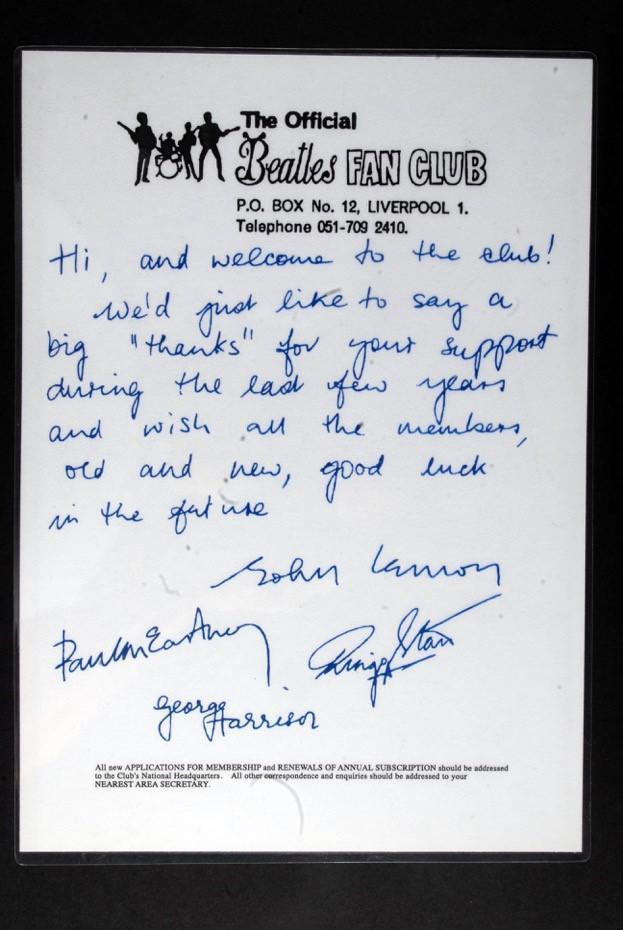 The Official
Beatles FAN CLUB
P.O. BOX No. 12, LIVERPOOL 1.
Telephone 051-709 2410.
Hi, and welcome to the club!
We'd just like to say a
big "thanks" for your support
during the last few years
and wish all the members,
old and new, good luck
in the future
John Lennon
Paul McCartney
Ringo Starr
George
Harrison
All new APPLICATIONS FOR MEMBERSHIP and RENEWALS OF ANNUAL SUBSCRIPTION should be addressed
to the Club's National Headquarters. All other correspondence and enquiries should be addressed to your
NEAREST AREA SECRETARY.